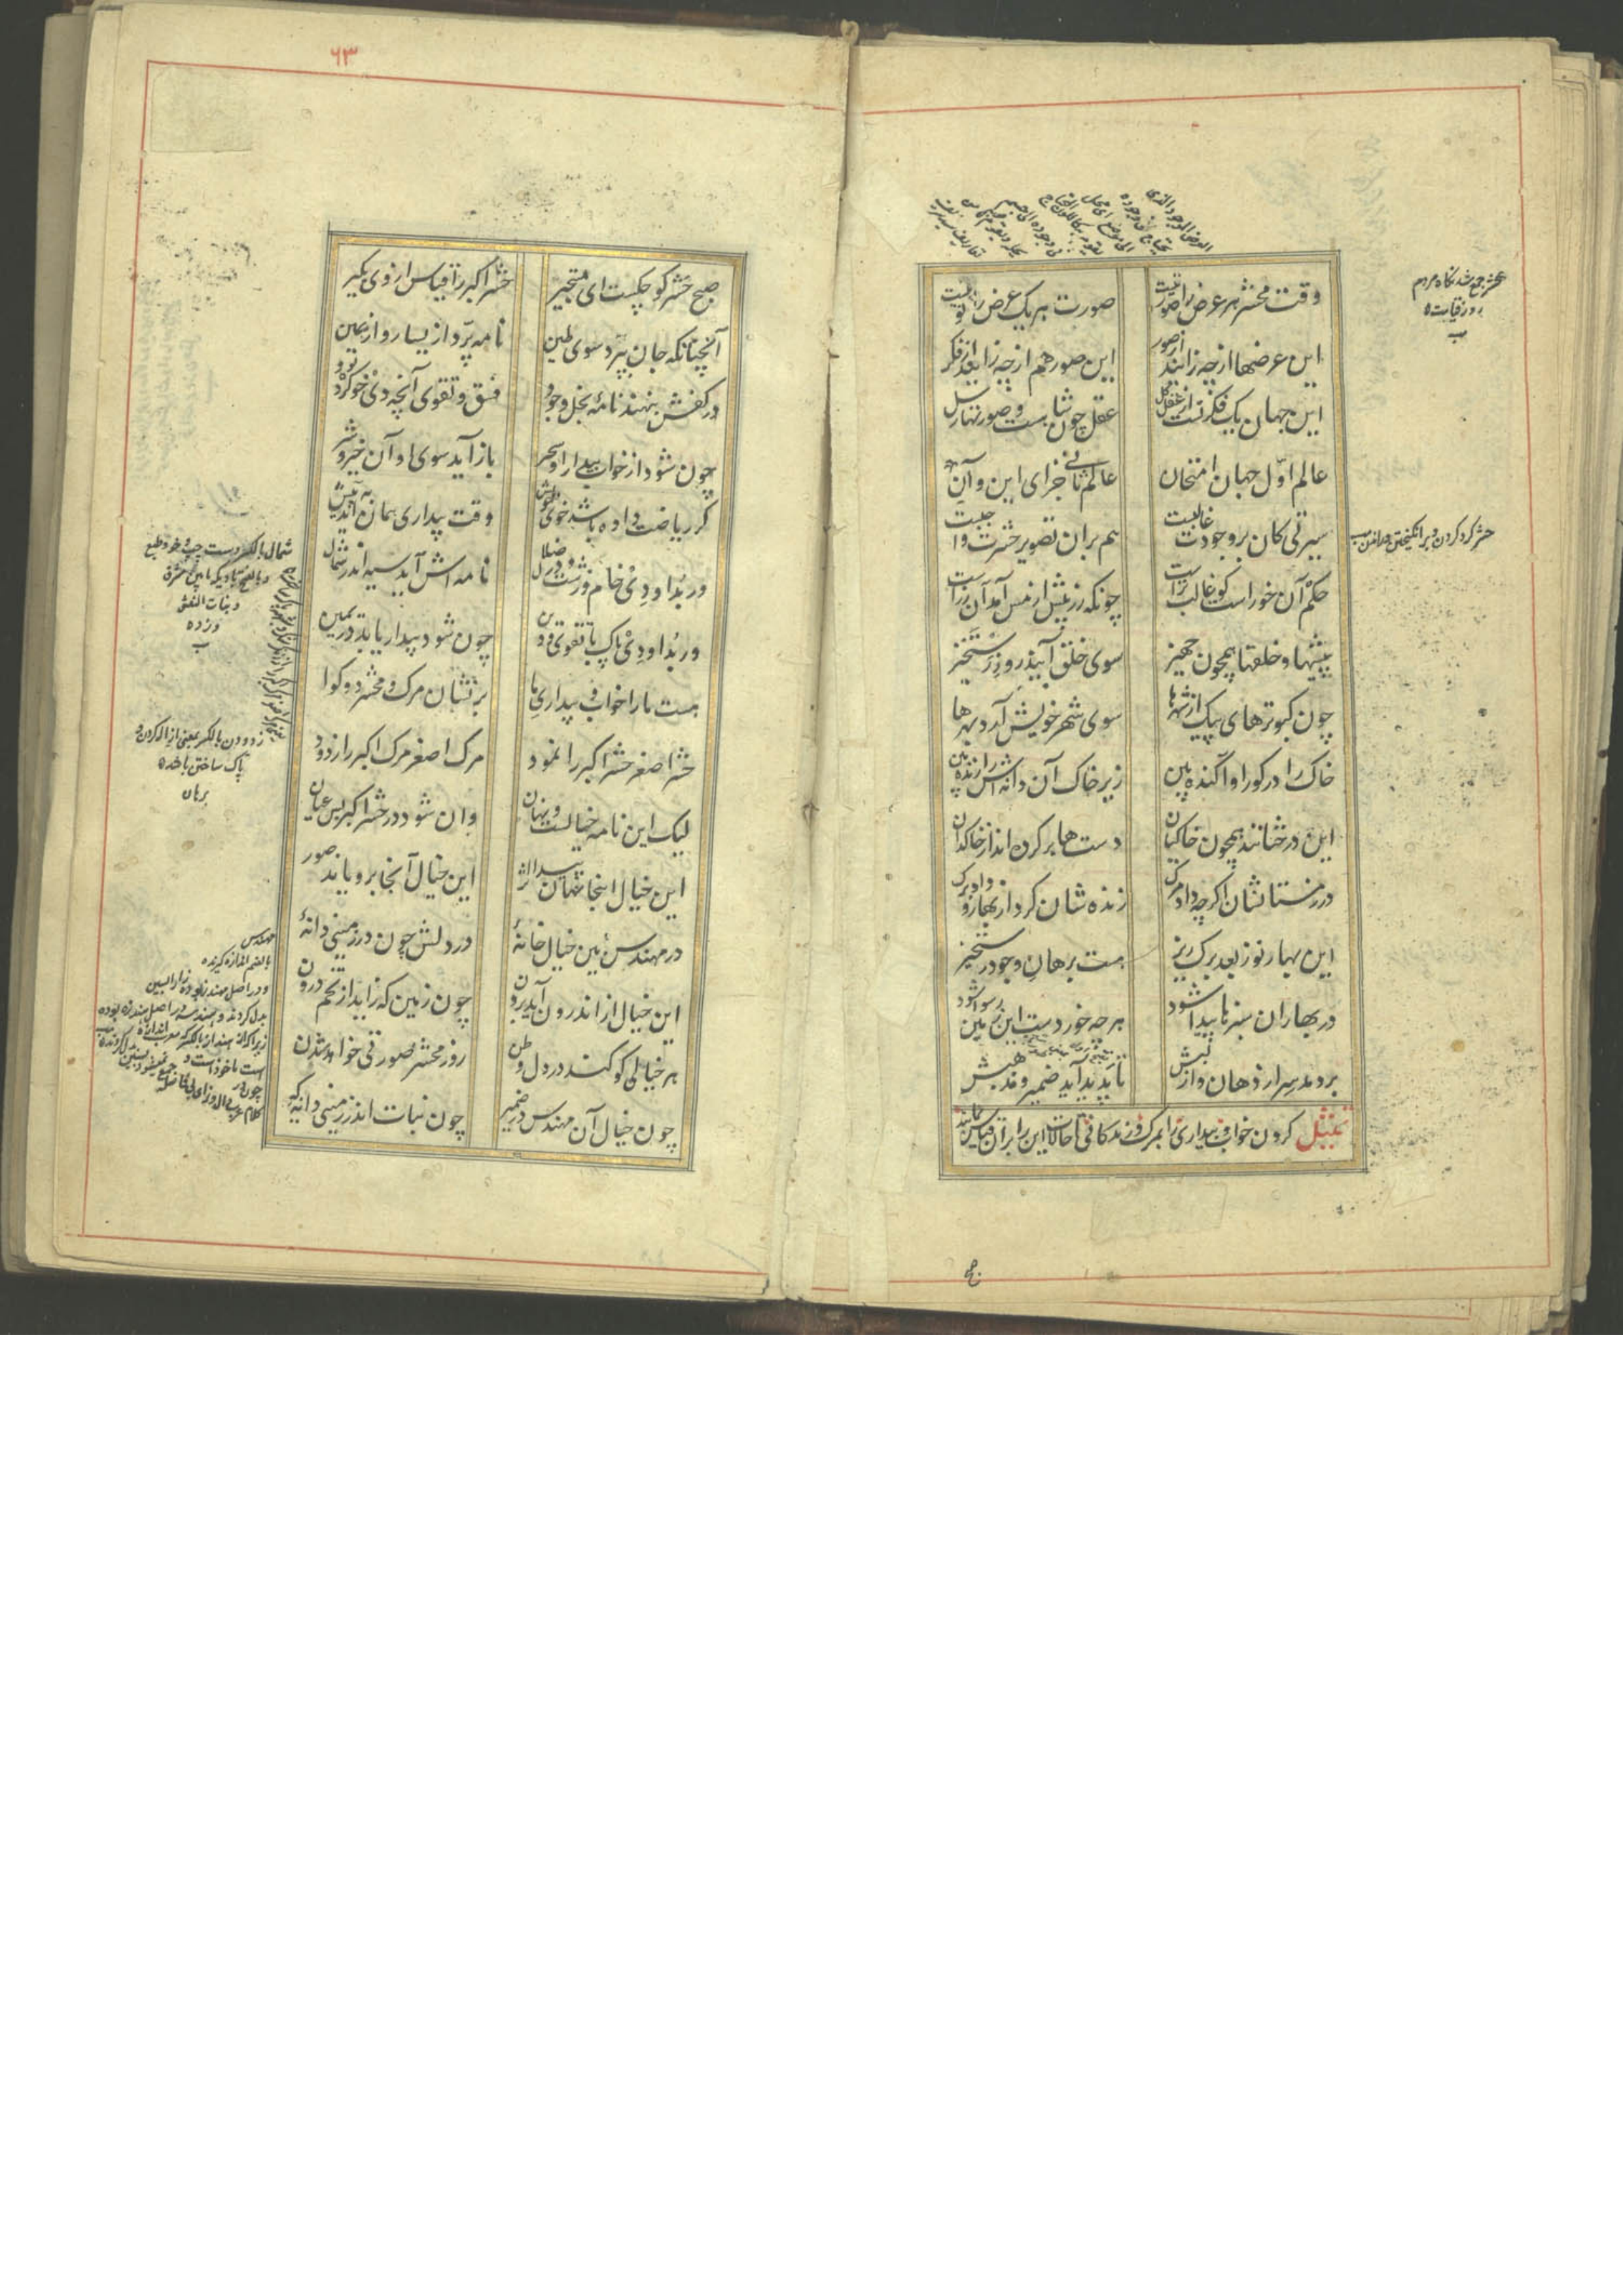 وقت محشر هر عرض را صورتیست
صورت هر یک عرض را نوبتیست
این عرضها از چه زایند از صور
این صور هم از چه زاید از فکر
این جهان یک فکرتست از عقل کل
عقل چون شاهست و صورتها رسل
عالم اول جهان امتحان
عالم ثانی جزای این و آن
سیرتی کان بر وجودت غالبست
هم بر آن تصویر حشرت واجبست
حکم آن خوراست کو غالب تراست
چونکه زر بیش از مس آمد آن زراست
پیشها و خلقها همچون جهیز
سوی خلق آیند روز رستخیز
چون کبوترهای پیک از شهرها
سوی شهر خویش آرد بهرها
خاک را در کور او اکنده بین
زیر خاک آن دانه‌اش را زنده بین
این درختانند همچون خاکیان
دست‌ها بر کرده‌اند از خاکدان
در زمستانشان اکرچه داد مرک
زنده‌شان کرد از بهار و داد برک
این بهار نو ز بعد برک ریز
هست برهان وجود رستخیز
در بهاران سرها پیدا شود
هر چه خوردست این زمین رسوا شود
بر دمد سر از دهان و از لبش
تا پدید آید ضمیر و مذهبش
تمثیل کردن خواب و بیداری را بمرک و زندکانی
محشر جمع شدنکاه مردم
روز قیامت
حشر کرد کردن و برانکیختن و راندن
۶۳
صبح حشر کوچکست ای مستجیر
حشر اکبر را قیاس از وی بکیر
آنچنانکه جان بپرد سوی طین
نامه پرد از یسار و از یمین
در کفش بنهند نامهٔ بخل و جود
فسق و تقوی آنچه دی خو کرده بود
چون شود از خواب بیدار او سحر
باز آید سوی او آن خیر و شر
کر ریاضت داده باشد خوی خویش
وقت بیداری همان آید به پیش
ور بد او دی خام و زشت و در ضلال
نامه‌اش آید سیه اندر شمال
ور بد او دی پاک با تقوی و دین
چون شود بیدار یابد در یمین
هست ما را خواب و بیداری ما
بر نشان مرک و محشر دو کوا
حشر اصغر حشر اکبر را نمود
مرک اصغر مرک اکبر را زدود
لیک این نامه خیالست و نهان
وان شود در حشر اکبر بس عیان
این خیال اینجا نهان پیدا اثر
این خیال آنجا برویاند صور
در مهندس بین خیال خانهٔ
در دلش چون در زمینی دانهٔ
این خیال از اندرون آید برون
چون زمین که زاید از تخم درون
هر خیالی کو کند در دل وطن
روز محشر صورتی خواهد شدن
چون خیال آن مهندس در ضمیر
چون نبات اندر زمینی دانه
شمال بالکسر دست چپ و خو و طبع
و بنات النعش
زدودن بالکسر بمعنی ازاله کردن و
پاک ساختن باشد
برهان
مهندس
بالضم اندازه کیرنده